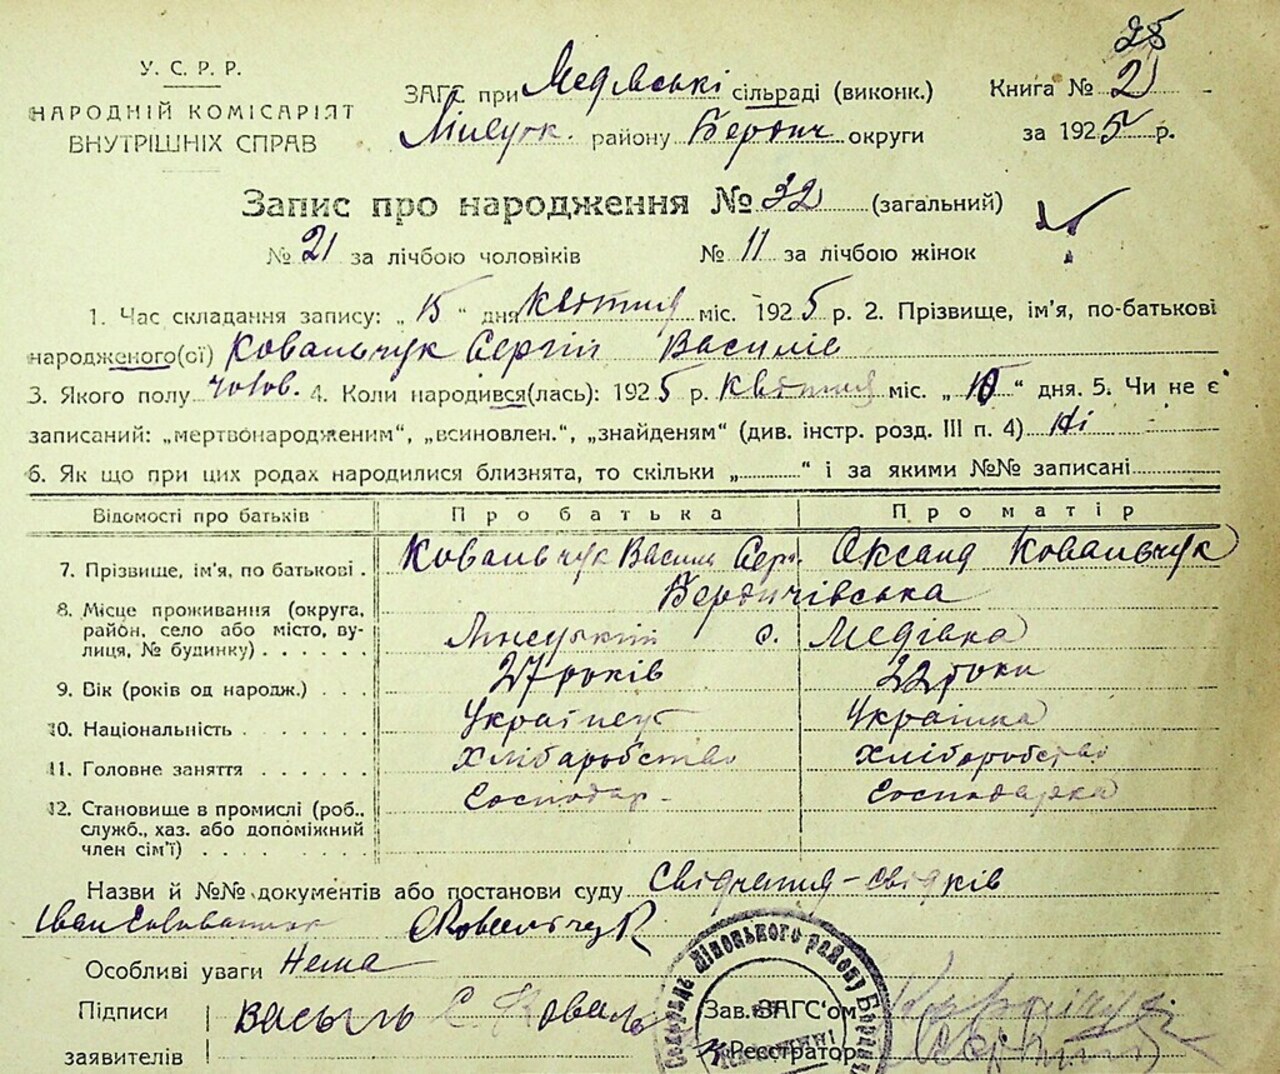 25
У. С. Р. Р.
НАРОДНІЙ КОМІСАРІЯТ
ВНУТРІШНІХ СПРАВ
ЗАГС при Медвські сільраді (виконк.) Книга № 2
району Бердич округи за 1925 р.
Запис про народження № 32 (загальний)
№ 21 за лічбою чоловіків № 11 за лічбою жінок
1. Час складання запису: „ 15 “ дня квітня міс. 1925 р. 2. Прізвище, ім'я, по-батькові
народженого(ої) Ковальчук Сергій Василів
3. Якого полу чолов. 4. Коли народився(лась): 1925 р. квітня міс. „ 10 “ дня. 5. Чи не є
записаний: „мертвонародженим“, „всиновлен.“, „знайденям“ (див. інстр. розд. III п. 4) Ні
6. Як що при цих родах народилися близнята, то скільки „ “ і за якими №№ записані
Відомості про батьків Про батька Про матір
7. Прізвище, ім'я, по батькові . Ковальчук Василь Серг. Оксана Ковальчук
8. Місце проживання (округа, Бердичівська
район, село або місто, ву- с. Медівка
лиця, № будинку) . . . . . .
9. Вік (років од народж.) . . . 27 років 22 роки
10. Національність . . . . . . . Українець Українка
11. Головне заняття . . . . . . Хліборобство хліборобство
12. Становище в промислі (роб., Господар. Господарка
служб., хаз. або допоміжний
член сім'ї) . . . . . . . .
Назви й №№ документів або постанови суду Свідчення свідків
Іван Ковальчук
Особливі уваги Нема
Підписи Василь С. Коваль Зав. ЗАГС'ом
заявителів Реєстратор